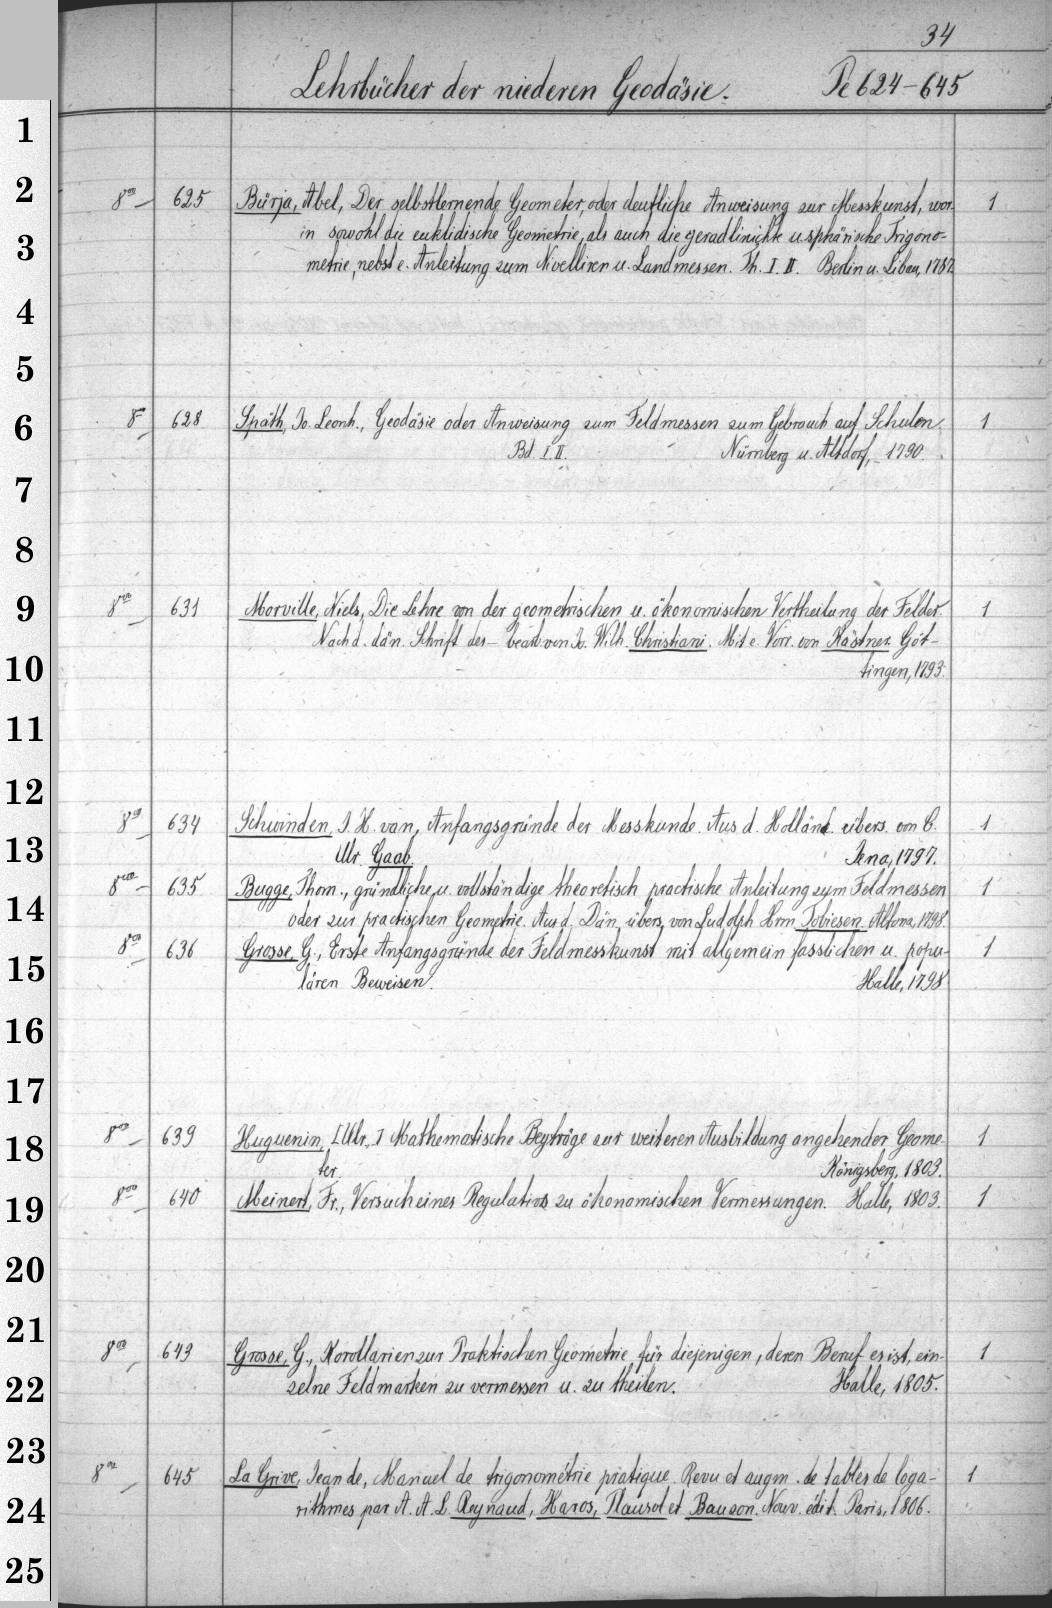 34
Lehrbücher der niederen Geodäsie. Pe 624-645
1
2
8vo 625 Bürja, Abel, Der selbstlernende Geometer, oder deutliche Anweisung zur Messkunst, wor- 1
in sowohl die euklidische Geometrie, als auch die geradlinichte u. sphärische Trigono-
3
metrie, nebst e. Anleitung zum Nivelliren u. Landmessen. Th. I. II. Berlin u. Libau, 1787.
4
5
6
8° 628 Späth, Jo. Leonh., Geodäsie oder Anweisung zum Feldmessen zum Gebrauch auf Schulen. 1
Bd. I. II. Nürnberg u. Altdorf, 1790.
7
8
9
8vo 631 Morville, Niels, Die Lehre von der geometrischen u. ökonomischen Vertheilung der Felder. 1
Nach d. dän. Schrift des - bearb von Jo. Wilh. Christiani. Mit e. Vorr. von Kästner. Göt-
10
tingen, 1793.
11
12
8° 634 Schwinden, J. H. van, Anfangsgründe der Messkunde. Aus d. Holländ. übers. von C. 1
13
Ulr. Gaab. Jena, 1797.
8vo 635 Bugge, Thom., gründliche u. vollständige theoretisch practische Anleitung zum Feldmessen 1
14
oder zur practischen Geometrie. Aus d. Dän. übers. von Ludolph Hrm. Tobiesen. Altona, 1798.
8vo 636 Grosse, G., Erste Anfangsgründe der Feldmesskunst mit allgemein fasslichen u. popu- 1
15
lären Beweisen. Halle, 1798
16
17
18
8vo 639 Huguenin, Ulr., Mathematische Beyträge zur weiteren Ausbildung angehender Geome- 1
ter. Königsberg, 1803.
19
8vo 640 Meinert, Fr., Versuch eines Regulativs zu ökonomischen Vermessungen. Halle, 1803. 1
20
21
8vo 643 Grosse, G., Korollarien zur Praktischen Geometrie für diejenigen, deren Beruf es ist, ein- 1
22
zelne Feldmarken zu vermessen u. zu theilen. Halle, 1805.
23
8vo 645 La Grive, Jean de, Manuel de trigonométrie pratique. Revu et augm. de tables de loga- 1
24
rithmes par A. A. L. Reynaud, Haros, Plausol et Bauzon. Nouv. édit. Paris, 1806.
25